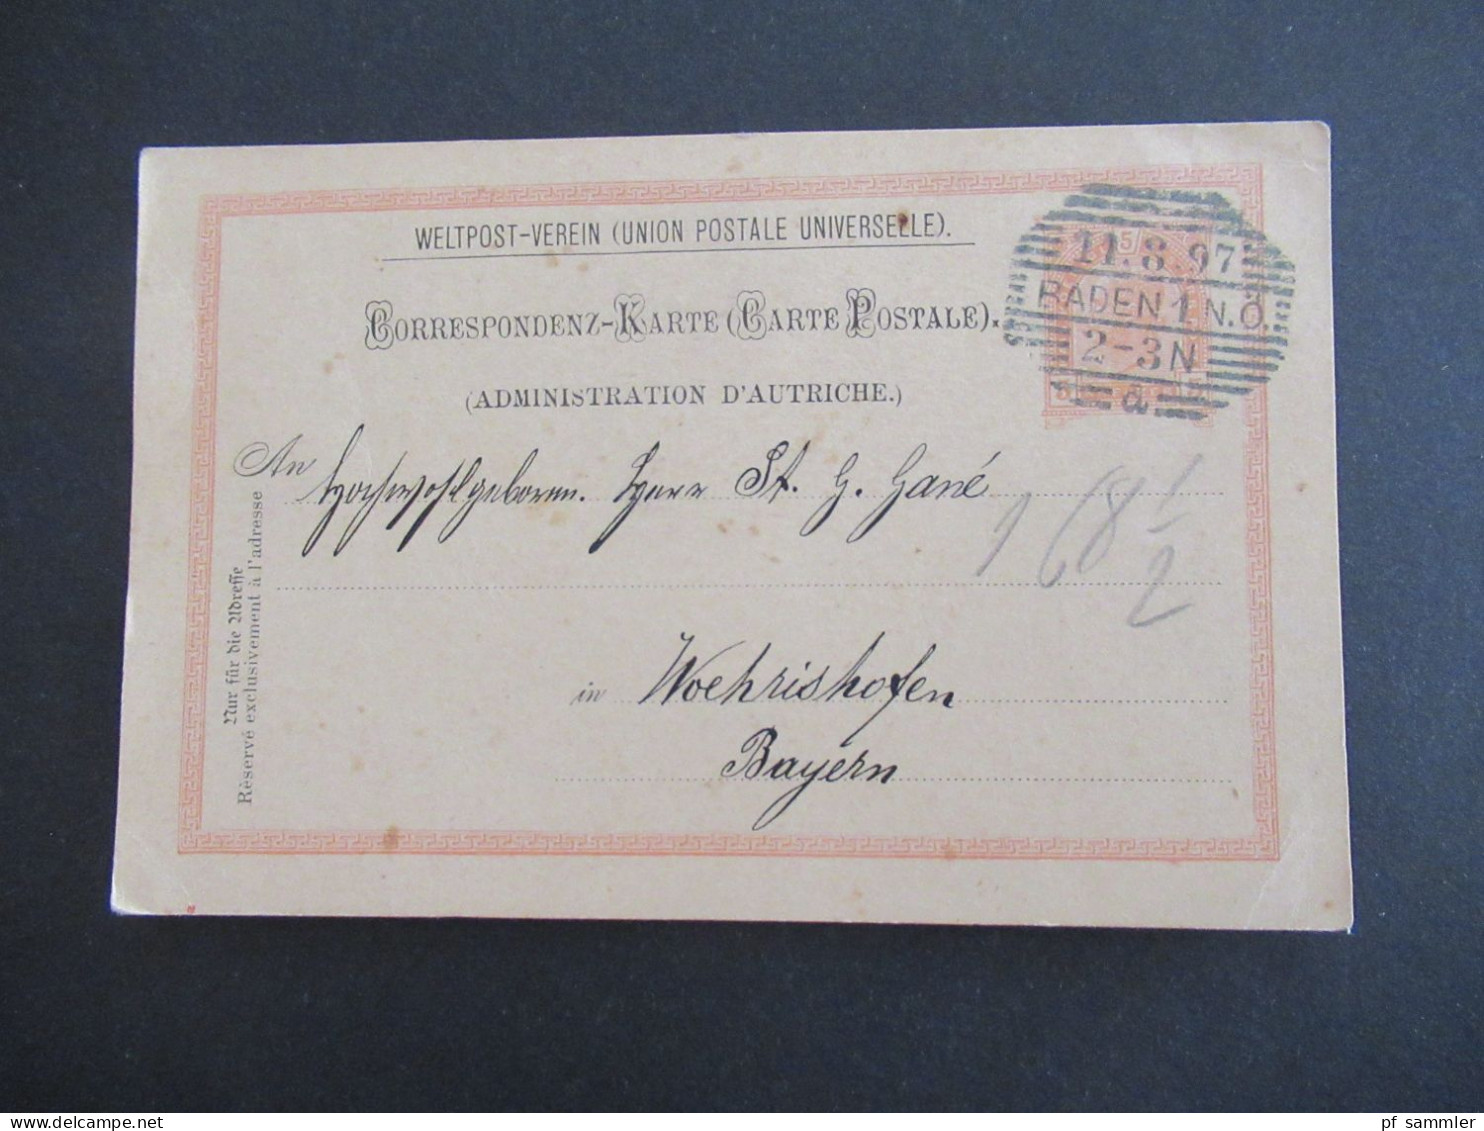 WELTPOST-VEREIN (UNION POSTALE UNIVERSELLE).
CORRESPONDENZ-KARTE (CARTE POSTALE).
(ADMINISTRATION D'AUTRICHE.)
11.8.97
BADEN 1 N.Ö.
2-3N
a
5
5
An Hochwohlgeboren. Herr St. G. Gané
168 1/2
in Woehrishofen
Bayern
Nur für die Adresse
Réservé exclusivement à l'adresse
pf_sammler